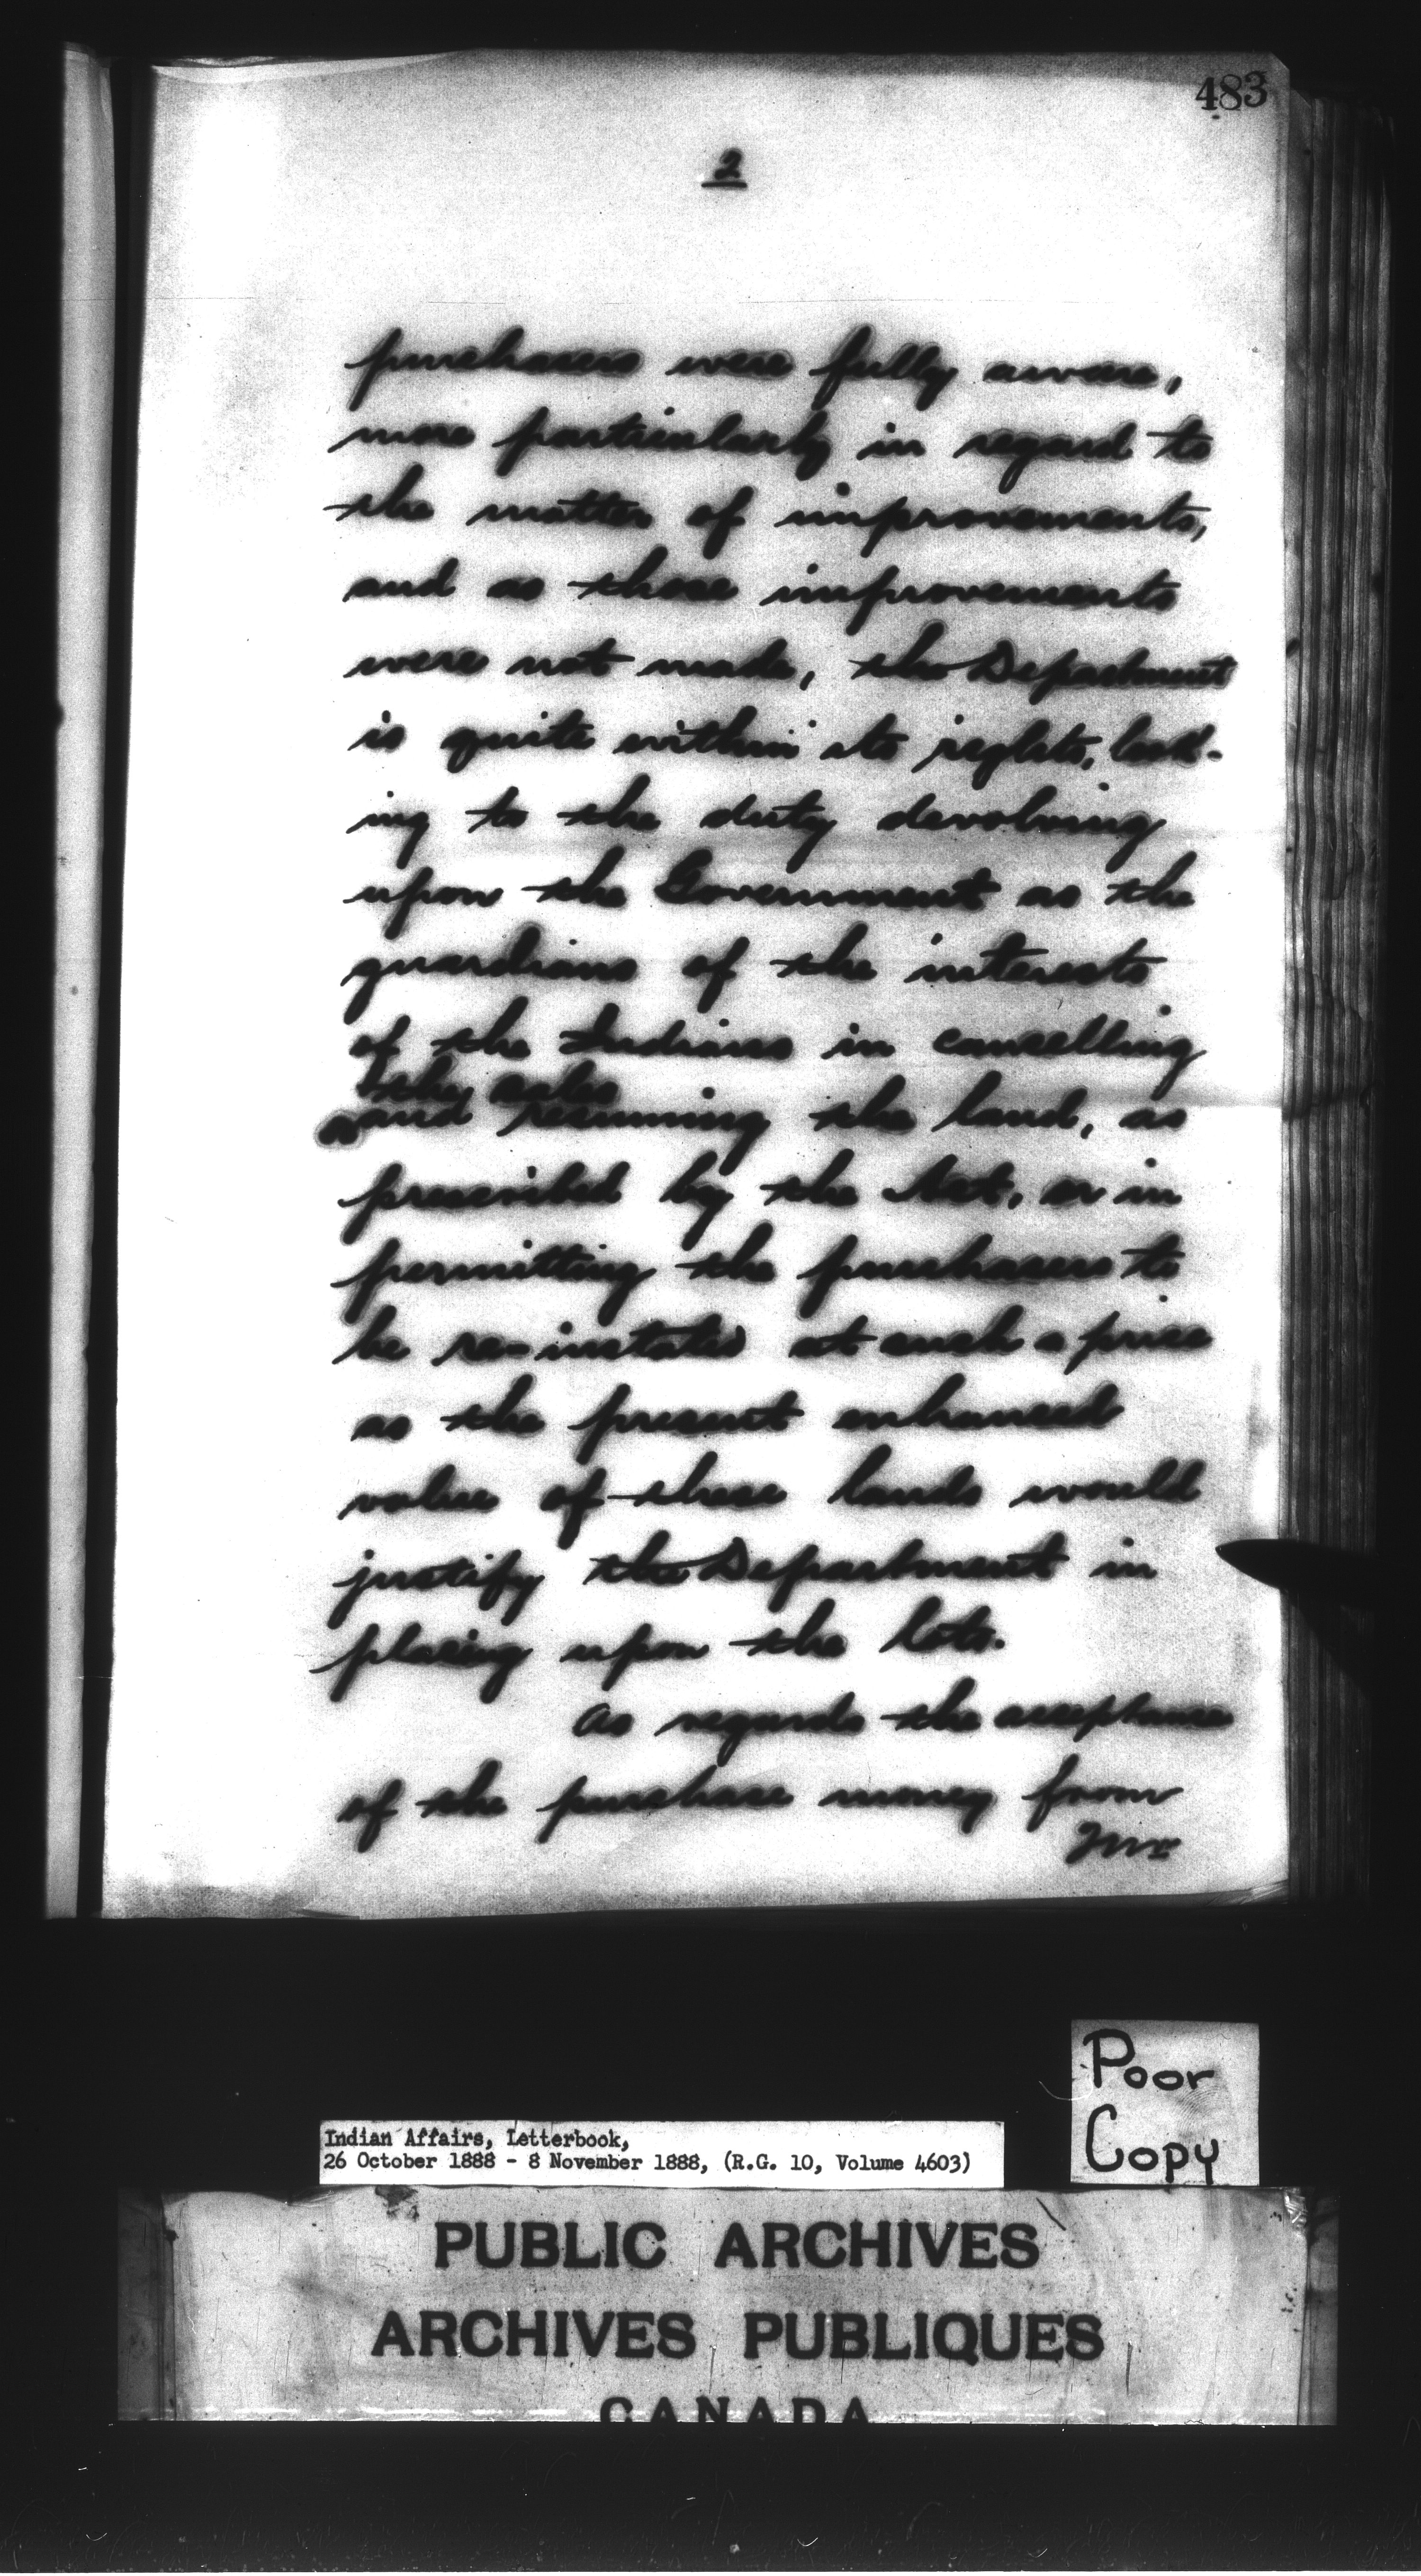 483
2
purchasers were fully aware,
more particularly in regard to
the matter of improvements,
and as those improvements
were not made, the Department
is quite within its rights, look-
ing to the duty devolving
upon the Government as the
guardians of the interests
of the Indians in cancelling
the sales
and resuming the land, as
prescribed by the Act, or in
permitting the purchasers to
be re-instated at such a price
as the present enhanced
value of these lands would
justify the Department in
placing upon the lots.
As regards the acceptance
of the purchase money from
Mr
Poor
Copy
Indian Affairs, Letterbook,
26 October 1888 - 8 November 1888, (R.G. 10, Volume 4603)
PUBLIC ARCHIVES
ARCHIVES PUBLIQUES
CANADA